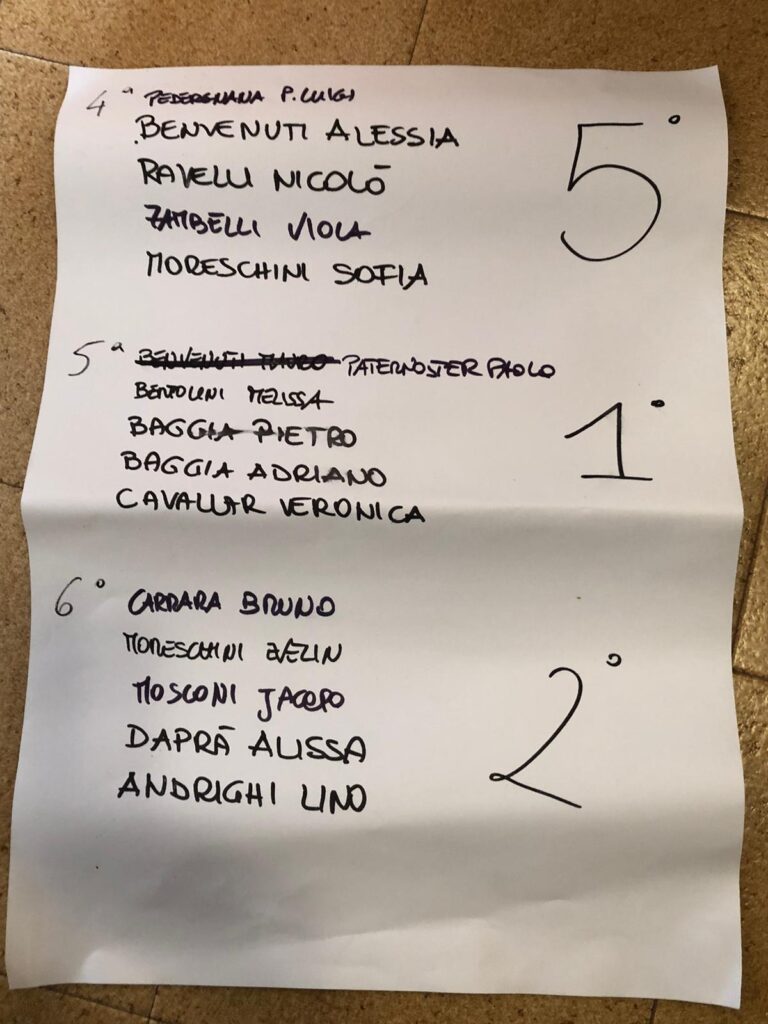 4ª PEDERGNANA P. LUIGI
BENVENUTI ALESSIA
RAVELLI NICOLÒ
ZAMBELLI VIOLA
MORESCHINI SOFIA
5°
5ª BENVENUTI PATERNOSTER PAOLO
BERTOLINI MELISSA
BAGGIA PIETRO
BAGGIA ADRIANO
CAVALLAR VERONICA
1°
6° CARRARA BRUNO
MORESCHINI EVELIN
MOSCONI JACOPO
DAPRÀ ALISSA
ANDRIGHI LINO
2°